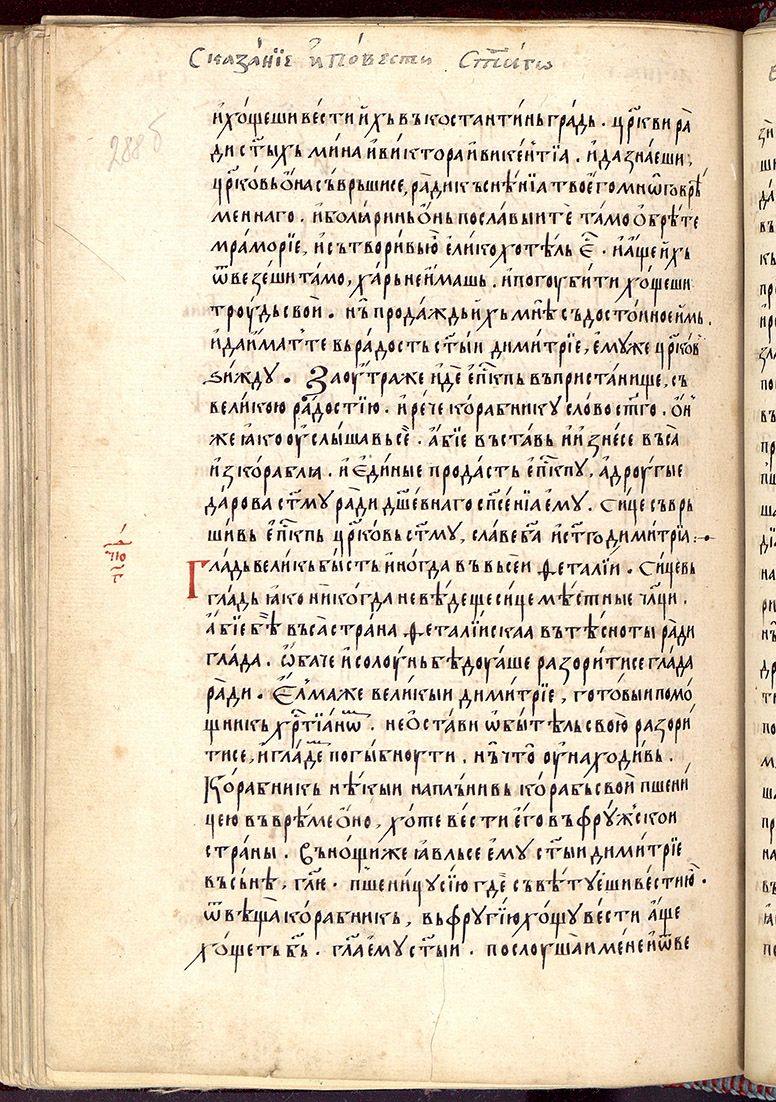 Сказа́нїе и҆ По́вести Ст҃а́гѡ
288б
и҆ хо́щеши ве́сти и҆́хъ в къ костанти́нь гра́дь . цр҃кви ра́
ди ст҃ы́хъ ми́на и҆ ви́ктора и҆ вике́нтїа . и҆ да зна́еши ,
цр҃ковь ѻ҆́на съвръшисе , ра́ди къснѣ́нїа твоего̀ мнѡ́говрѣ́
меннаго . и҆ боляринь ѻ҆́нь посла́выи те̏ та́мо ѡ҆брѣ́те
мра́морїе , и҆ сътвори́вы ю҆̀ ели́ко хотѣ́ль е҆̑ . и҆ а҆́ще и҆́хъ
ѿвезе́ши та́мо , ха́рь не и҆́машь . и҆ погоуби́ти хо́щеши
троу́дь сво́й . нъ̏ прода́ждь и҆́хъ мнѣ̀ съ досто́иное и҆мь .
и҆ да и҆́мат те вь ра́дость ст҃ы́и дими́трїе , є҆му́же цр҃ковь
зи́жду . Заоу́тра же и҆́де е҆пⷭ҇кпь въ приста́нище , съ
вели́кою ра́достїю . и҆ ре́че кора́бнику сло́во ст҃го . ѻ҆́н
же ꙗ҆́ко оу҆слы́ша вьсѐ . а҆́бїе въста́вь и҆ и҆знесе въса
и҆з кора́бля . и҆ є҆ди́ные прода́сть е҆пⷭ҇кпу , а҆ дроу́гые
дарова ст҃му ра́ди дш҃е́внаго сп҃се́нїа є҆му . Си́це съвръ
ши́вь е҆пⷭ҇кпь цр҃ковь ст҃му , сла́ве бг҃а и҆ ст҃го дими́трїа :·
чю
г
Гла́дь вели́кь бы́сть и҆ногда въ вьсе́и ѳетали́и . Си́цевь
гла́дь ꙗ҆́ко ни́когда не вѣ́деще си́це мѣ́стные чл҃ци .
а҆́бїе бѣ̀ въса̀ стра́на ѳетали́йскаа въ тѣ́сноты ра́ди
гла́да . ѻ҆ба́че и҆ солоу́нь бѣдоу҆аше разори́тисе гла́да
ра́ди . Е҆лма́же вели́кыи дими́трїе , гото́выи помо́
щникь хр҃тїа́нѡⷨ . не ѻ҆ста́ви ѻ҆бы́тѣль свою разори́
тисе , и҆ гла́дѡⷨ погы́бноути . нъ̏ что̀ оу҆находи́вь .
Кора́бникь нѣ́кыи наплъни́вь кора́бь сво́й пшени́
цею въ врѣ́ме ѻ҆́но , хо́те ве́сти є҆го̀ въ фру́жскои
стра́ны . Въ но́щи же ꙗ҆влъсе є҆му ст҃ы́и дими́трїе
въ сънѣ̀ , гл҃ю . пшени́цу сїю̀ гдѐ съвѣ́туеши ве́сти ю .
ѿвѣща̀ кора́бникь , вь фру́гїю хо́щу ве́сти а҆́ще
хо́щеть бг҃ь . гл҃а є҆му ст҃ы́и . послоу́шаи ме́не и҆ ѿве